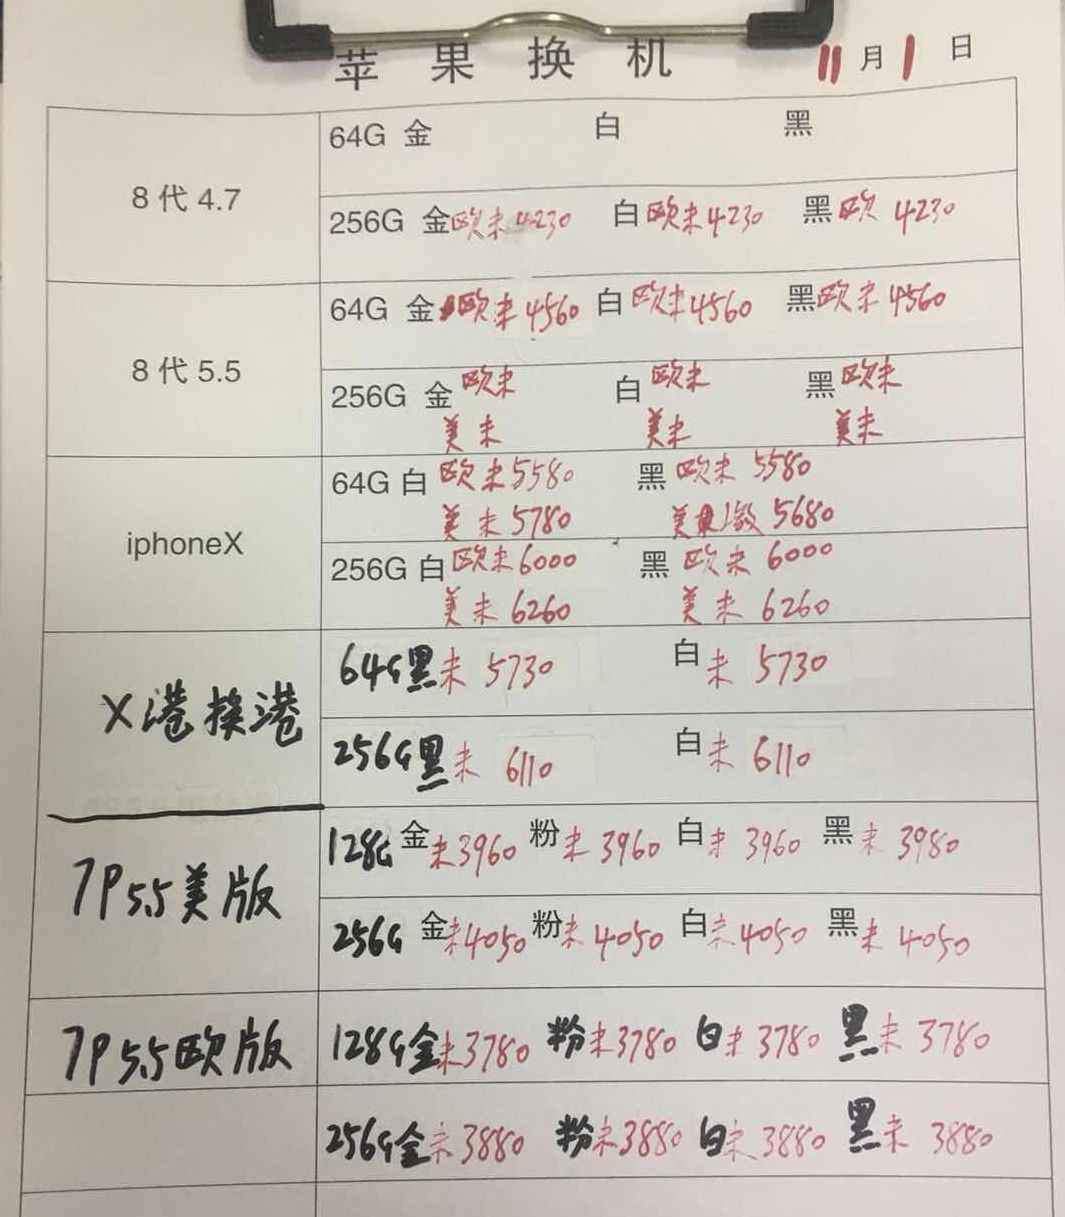 苹果换机 11月1日
8代4.7
64G 金 白 黑
256G 金欧未4230 白欧未4230 黑欧 4230
8代5.5
64G 金欧未4560 白欧未4560 黑欧未4560
256G 金欧未 白欧未 黑欧未
美未 美未 美未
iphoneX
64G 白 欧未5580 黑 欧未 5580
美未5780 美 激 5680
256G 白 欧未6000 黑 欧未 6000
美未 6260 美未 6260
X港换港
64G黑未 5730 白未 5730
256G黑未 6110 白未 6110
7P5.5美版
128G 金未3960 粉未 3960 白未 3960 黑未 3980
256G 金未4050 粉未 4050 白未 4050 黑未 4050
7P5.5欧版
128G金未3780 粉未3780 白未 3780 黑未 3780
256G金未3880 粉未3880 白未3880 黑未 3880